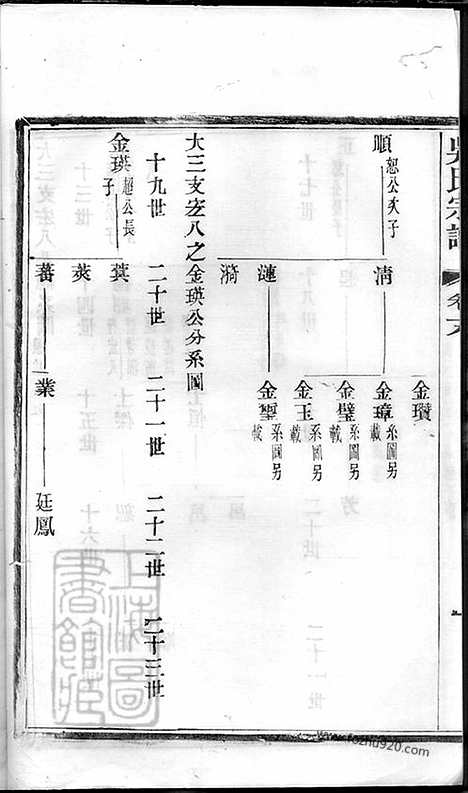 吳氏宗譜 卷六
順 恕公次子
清
漣
漪
金瓚
金璋 系圖另載
金璧 系圖另載
金玉 系圖另載
金璽 系圖另載
大三支宏八之金瑛公分系圖
十九世 二十世 二十一世 二十二世 二十三世
金瑛 超公長子
蓂
莢
蕃 業 廷鳳
上海圖書館藏
www.fozhu920.com